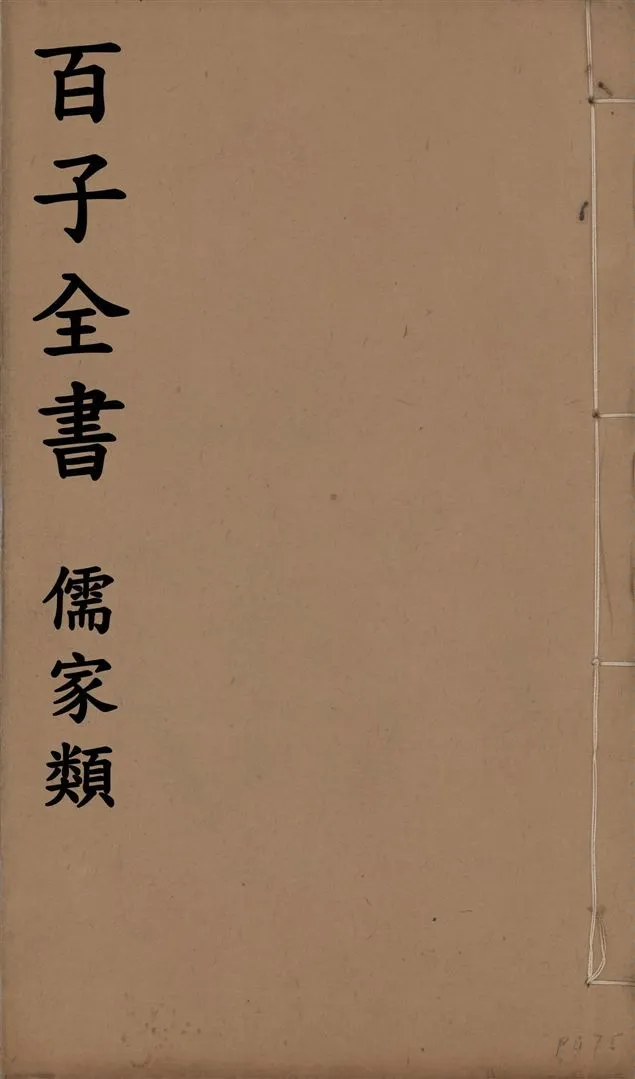 百子全書 儒家類
P975